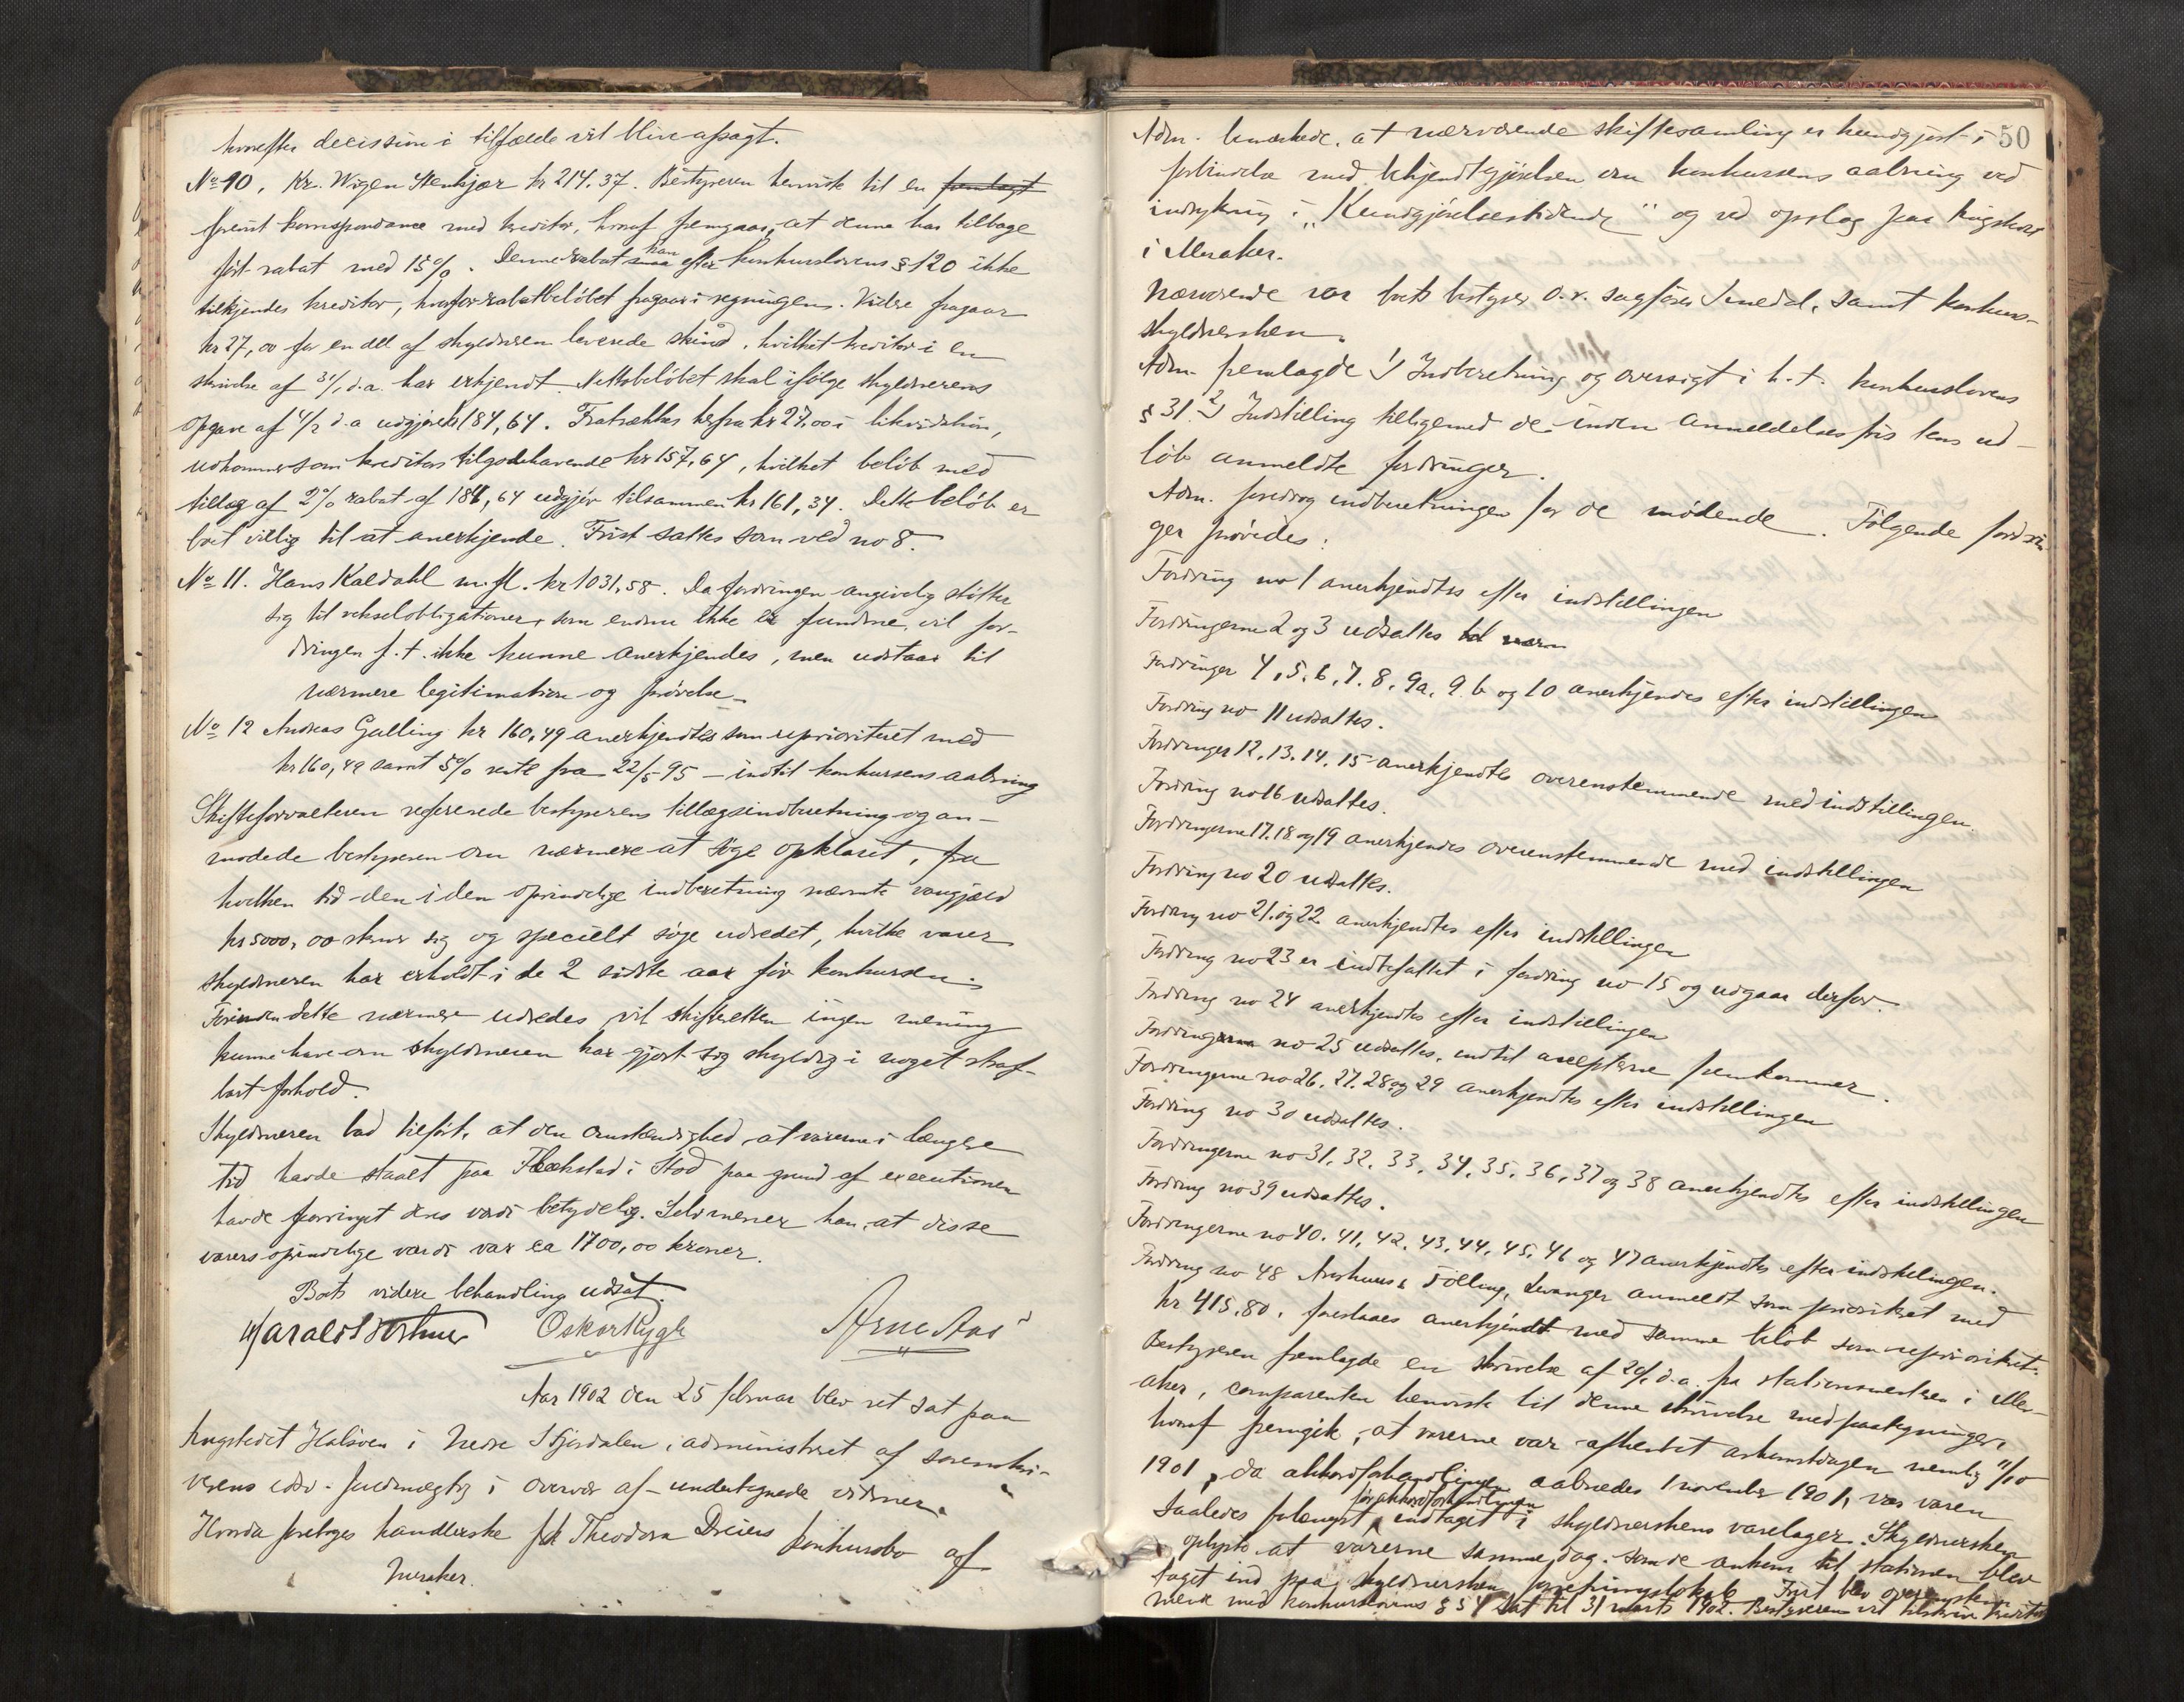 hvorefter decission i tilfælde vil blive afsagt.
No 10. Kr. Wigen Stenkjær kr 214.37. Bestyreren henviste til en fremlagt
ført korrespondance med kreditor, hvoraf fremgaar, at denne har tilbage
ført rabat med 15%. Denne rabat kan efter konkurslovens § 120 ikke
tilkjendes kreditor, hvorfor rabatbeløbet fragaar i regningen. Videre fragaar
kr 27,00 for en del af skyldneren leverede skind, hvilket kreditor i en
skrivelse af 31/1 d.a. har erkjendt. Nettobeløbet skal ifølge skyldnerens
opgave af 4/2 d.a udgjøre kr 184,64. Fratrækkes herfra kr 27.00 i likvidation,
udkommer som kreditors tilgodehavende kr 157,64, hvilket beløb med
tillæg af 2% rabat af 184,64 udgjør tilsammen kr 161,34. Dette beløb er
boet villig til at anerkjende. Frist sattes som ved no 8.
No 11. Hans Kaldahl m. fl. kr 1031,58. Da fordringen angivelig støtter
sig til vekselobligationer, som endnu ikke er fundne, vil for-
dringen f. t. ikke kunne anerkjendes, men udstaar til
nærmere legitimation og prøvelse.
No 12 Andreas Gælling kr 160,49 anerkjendtes som uprioriteret med
kr 160,49 samt 5% rente fra 22/5 95 – indtil konkursens aabning
Skifteforvalteren refererede bestyrerens tillægsindberetning og an-
modede bestyreren om nærmere at søge opklaret, fra
hvilken tid den i den oprindelige indberetning nævnte varegjæld
kr 5000,00 skriver sig og specielt søge udredet, hvilke varer
skyldneren har erholdt i de 2 sidste aar før konkursen.
Forinden dette nærmere udredes vil skifteretten ingen mening
kunne have om skyldneren har gjort sig skyldig i noget straf-
bart forhold.
Skyldneren bad tilført, at den omstændighed, at varerne i længere
tid havde staaet paa Flekstad i Stod paa grund af executionen
havde forringet dens værdi betydelig. Selv mener han, at disse
varers oprindelige værdi var ca 1700,00 kroner.
Boets videre behandling udsat.
Harald Oskar Rygh Arne Aas
Aar 1902 den 25 februar blev ret sat paa
tingstedet Halsøen i Nedre Stjørdalen, administreret af sorenskri-
verens edsv. fuldmægtig i overvær af undertegnede vidner.
Hvorda foretoges handlerske frk Theodora Dreiers konkursbo af
Meraker.
50
Adm. bemærkede, at nærværende skiftesamling er kundgjort i
forbindelse med bekjendtgjørelsen om konkursens aabning ved
indrykning i "Kundgjørelsestidende" og ved opslag paa tingstedet
i Meraker.
Nærværende var boets bestyrer o.r. sagfører Smedal, samt konkurs-
skyldnersken.
Adm. fremlagde 1) Indberetning og oversigt i h. t. konkurslovens
§ 31. 2) Indstilling tilligemed de inden anmeldelsesfristens ud-
løb anmeldte fordringer.
Adm. foredrog indberetningen for de mødende. Følgende fordrin
ger prøvedes:
Fordring no 1 anerkjendtes efter indstillingen
Fordringerne 2 og 3 udsattes til
Fordringer 4, 5. 6. 7. 8. 9a. 9.b og 10 anerkjendes efter indstillingen
Fordring no 11 udsattes.
Fordringer 12. 13. 14. 15 anerkjendtes overenstemmende med indstillingen.
Fordring no 16 udsattes.
Fordringerne 17. 18 og 19 anerkjendes overenstemmende med indstillingen
Fordring no 20 udsattes.
Fordring no 21. og 22 anerkjendtes efter indstillingen
Fordring no 23 er indbefattet i fordring no 15 og udgaar derfor.
Fordring no 24 anerkjendtes efter indstillingen
Fordringerne no 25 udsattes, indtil accepterne fremkommer.
Fordringerne no 26. 27. 28 og 29 anerkjendtes efter indstillingen
Fordring no 30 udsattes.
Fordringerne no 31. 32. 33. 34. 35. 36. 37 og 38 anerkjendtes efter indstillingen
Fordring no 39 udsattes.
Fordringerne no 40. 41. 42. 43. 44. 45. 46 og 47 anerkjendtes efter indstillingen.
Fordring no 48 Følling, Levanger anmeldt som prioriteret med
kr 415.80. foreslaaes anerkjendt med samme beløb som uprioriteret.
Bestyreren fremlagde en skrivelse af d.a. fra stationsmesteren i Mer-
aker, comparenten henviste til denne skrivelse med paategninger,
hvoraf fremgik, at varerne var afhentet ankomstdagen nemlig 11/10
1901, da akkordforhandlingen aabnedes 1 november 1901, var varen
saaledes forlængst før akkordforhandlingen indtaget i skyldnerskens varelager. Skyldnersken
oplyste at varerne samme dag som de ankom til stationen blev
taget ind paa skyldnerskens forretningslokale Frist blev overenstem-
mende med konkurslovens § 54 sat til 31 marts 1902. Bestyreren vil tilskrive kreditor